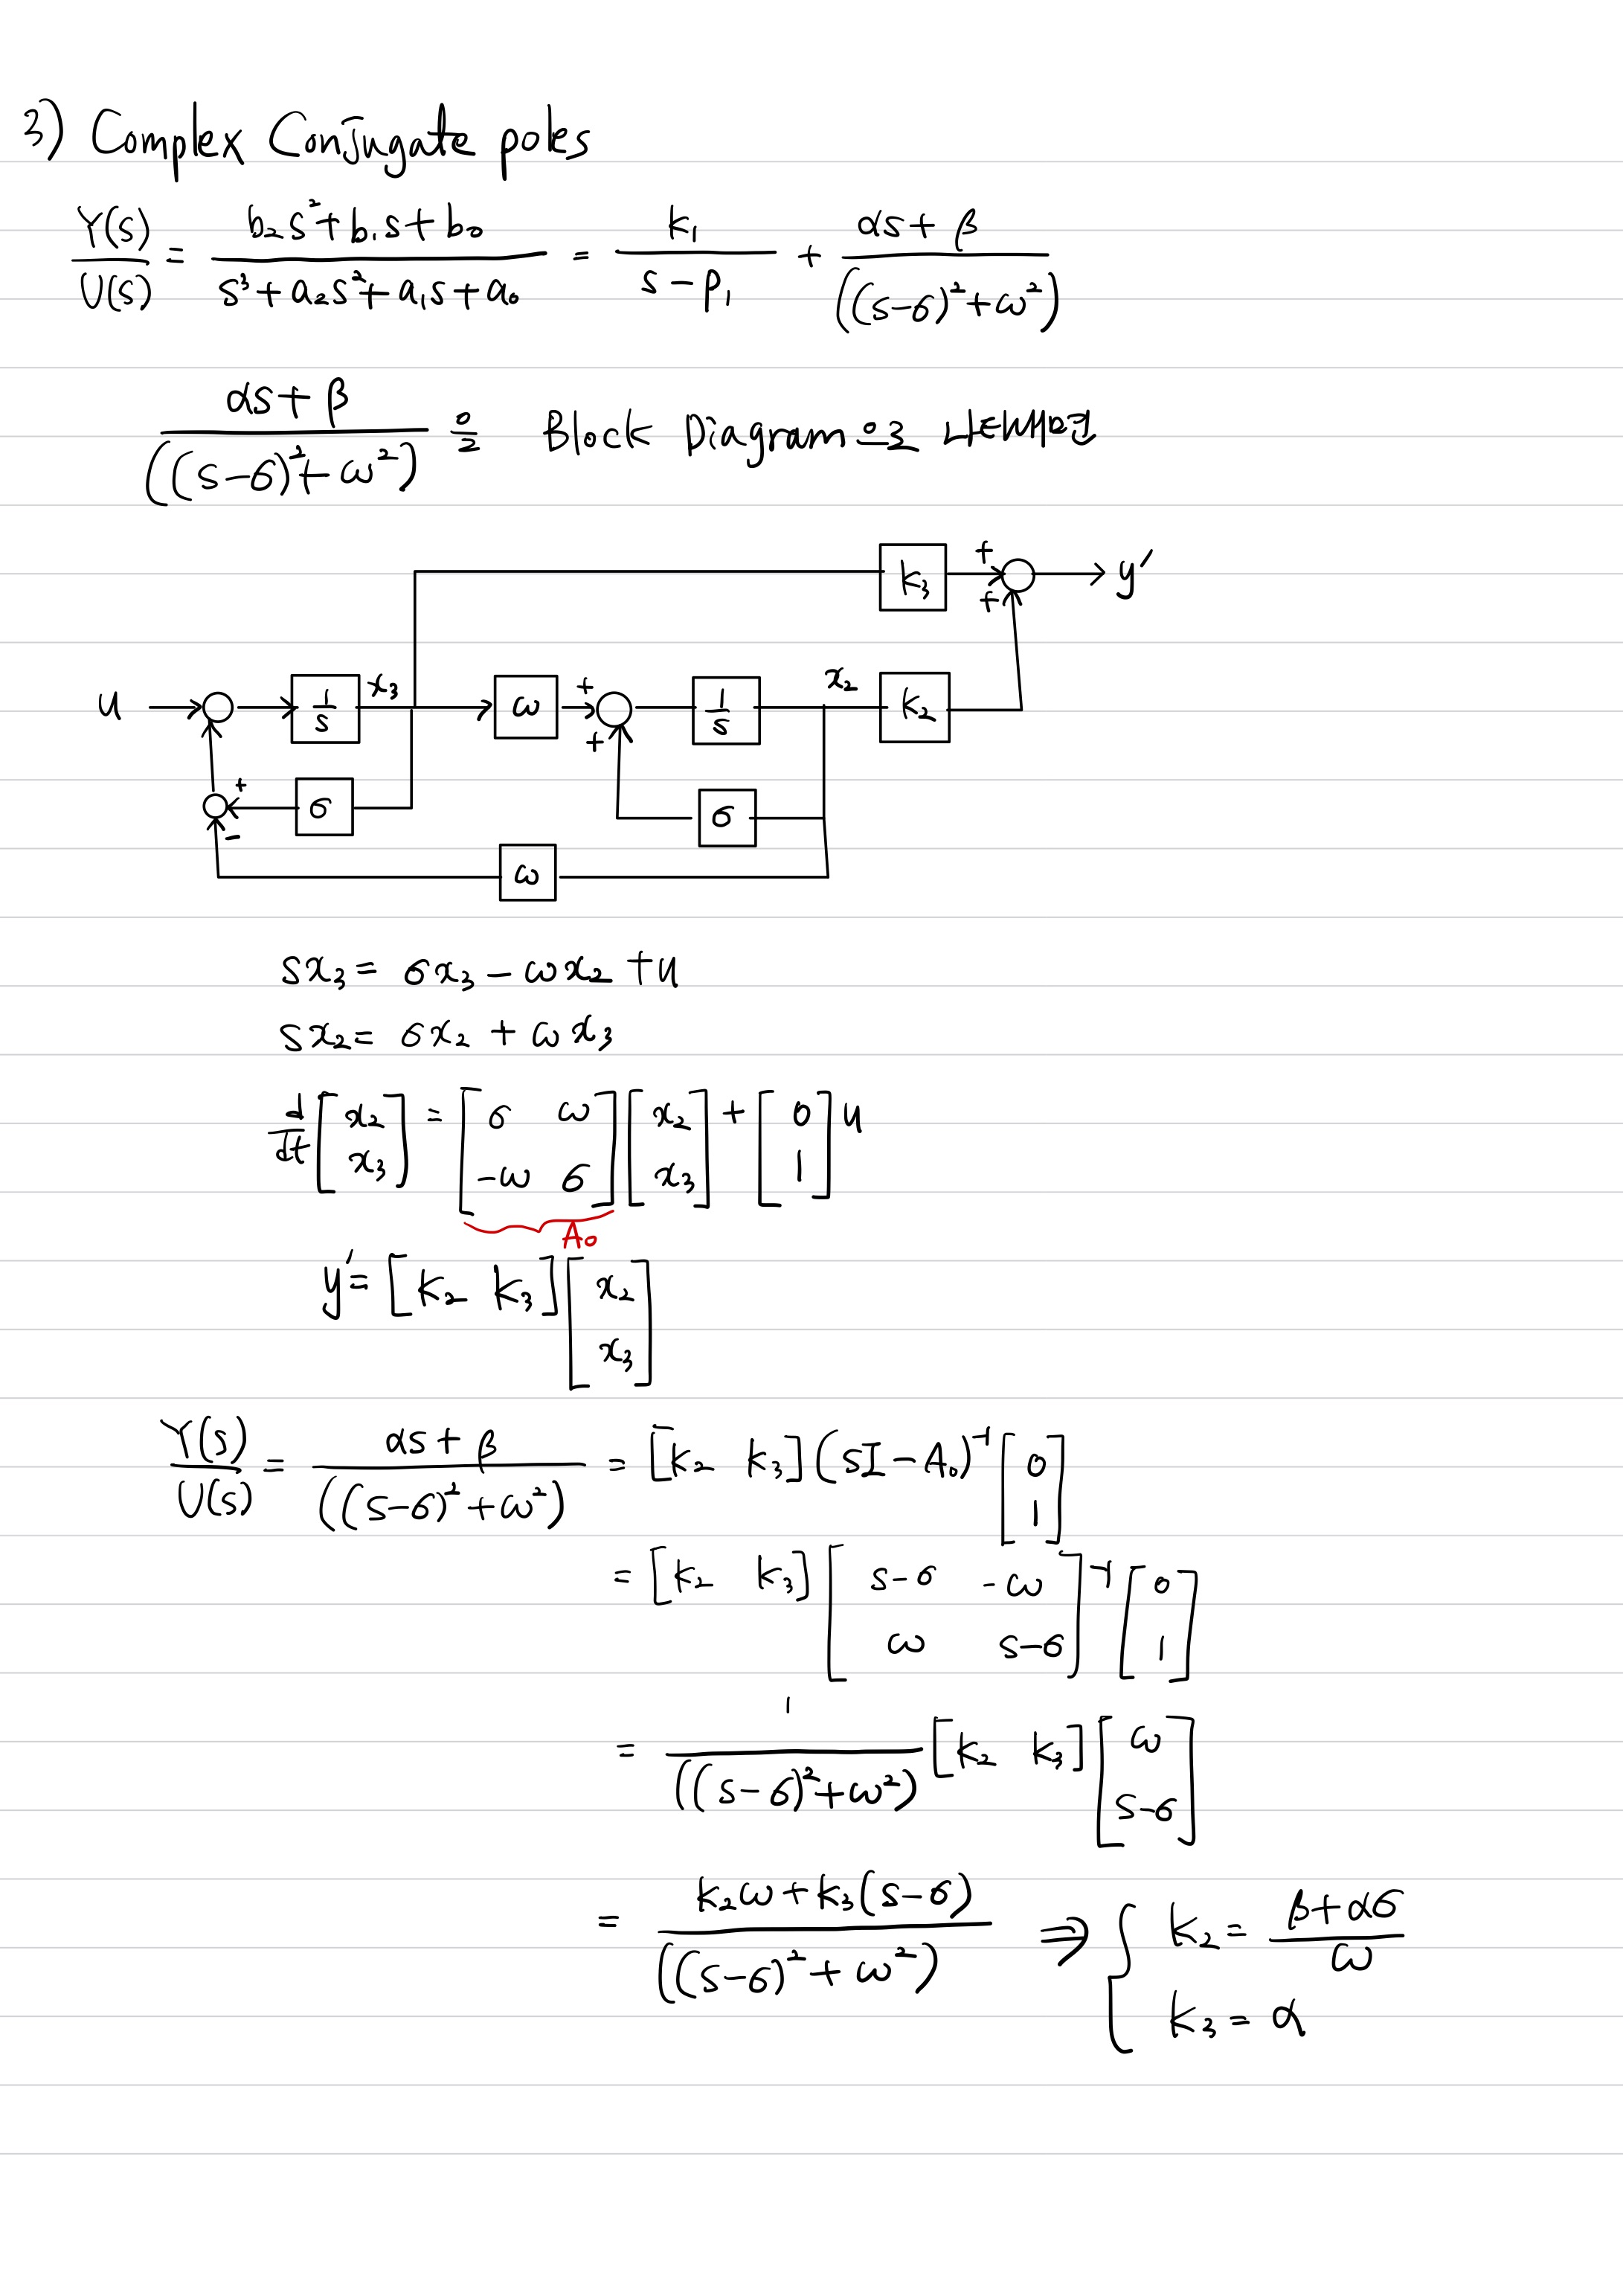 3) Complex Conjugate poles
Y(s)/U(s) = (b₂s²+b₁s+b₀)/(s³+a₂s²+a₁s+a₀) = k₁/(s-p₁) + (αs+β)/((s-σ)²+ω²)
(αs+β)/((s-σ)²+ω²) 을 Block Diagram으로 나타내면
k₃ + + y′
u 1/s x₃ ω + + 1/s x₂ k₂
+ - σ σ
ω
sx₃ = σx₃ - ωx₂ + u
sx₂ = σx₂ + ωx₃
d/dt [x₂; x₃] = [σ ω; -ω σ] [x₂; x₃] + [0; 1] u
A₀
y′ = [k₂ k₃] [x₂; x₃]
Y(s)/U(s) = (αs+β)/((s-σ)²+ω²) = [k₂ k₃] (sI-A₀)⁻¹ [0; 1]
= [k₂ k₃] [s-σ -ω; ω s-σ]⁻¹ [0; 1]
= 1/((s-σ)²+ω²) [k₂ k₃] [ω; s-σ]
= (k₂ω+k₃(s-σ))/((s-σ)²+ω²) ⇒ { k₂ = (β+ασ)/ω
k₃ = α